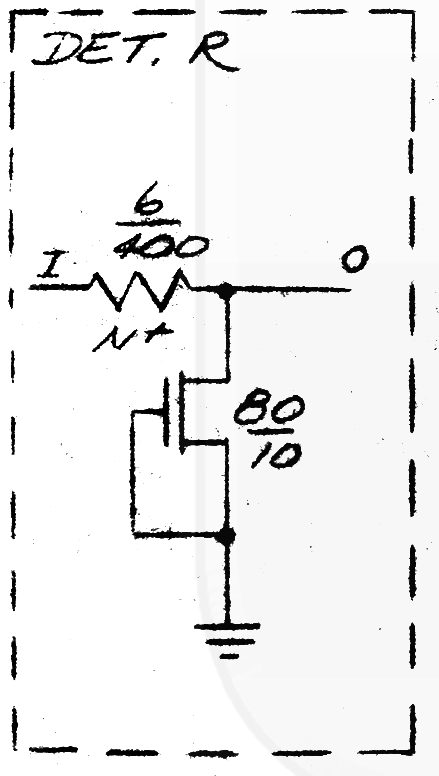 DET. R
6
400
I
O
N+
80
10